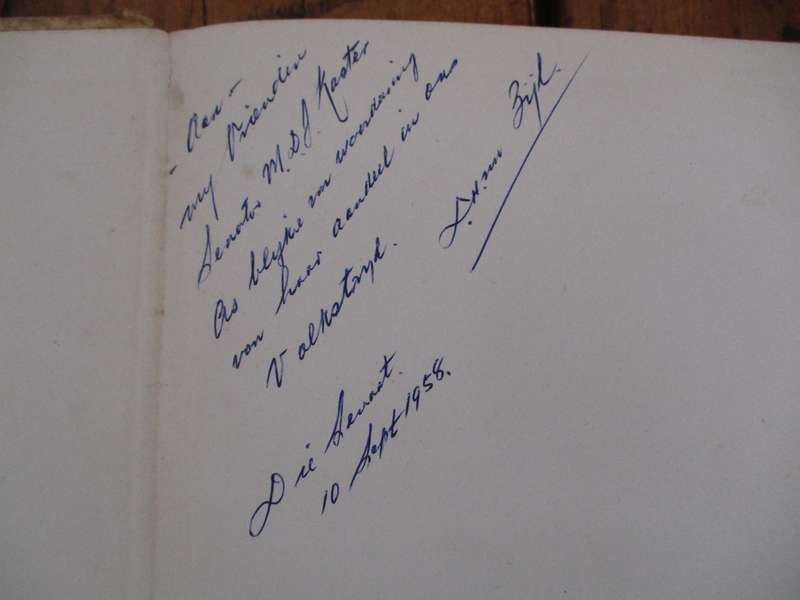 - Aan -
my Vriendin
Senator M.D.J. Koster
As blyke van waardering
van haar aandeel in ons
Volkstryd.
van Zijl.
Die Senaat.
10 Sept 1958.